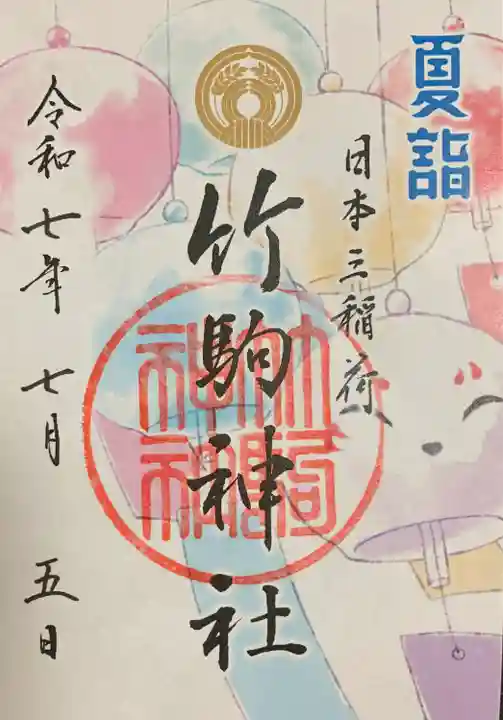 夏詣
日本三稲荷
竹駒神社
竹駒
神社
令和七年 七月 五日